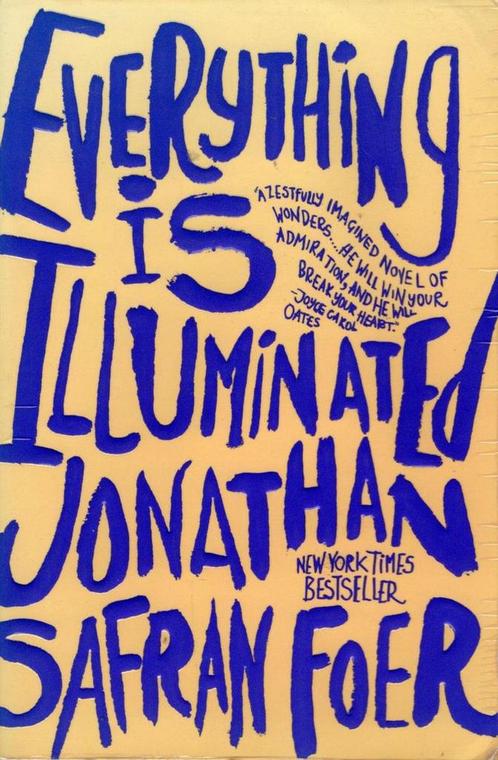 EVERYTHiNg
iS
"A ZESTFULLY IMAGINED NOVEL OF
WONDERS....HE WILL WIN YOUR
ADMIRATION, AND HE WILL
BREAK YOUR HEART."
—JOYCE CAROL
OATES
ILLUMiNATEd
JONATHAN
NEW YORK TIMES
BESTSELLER
SAFRAN FOER